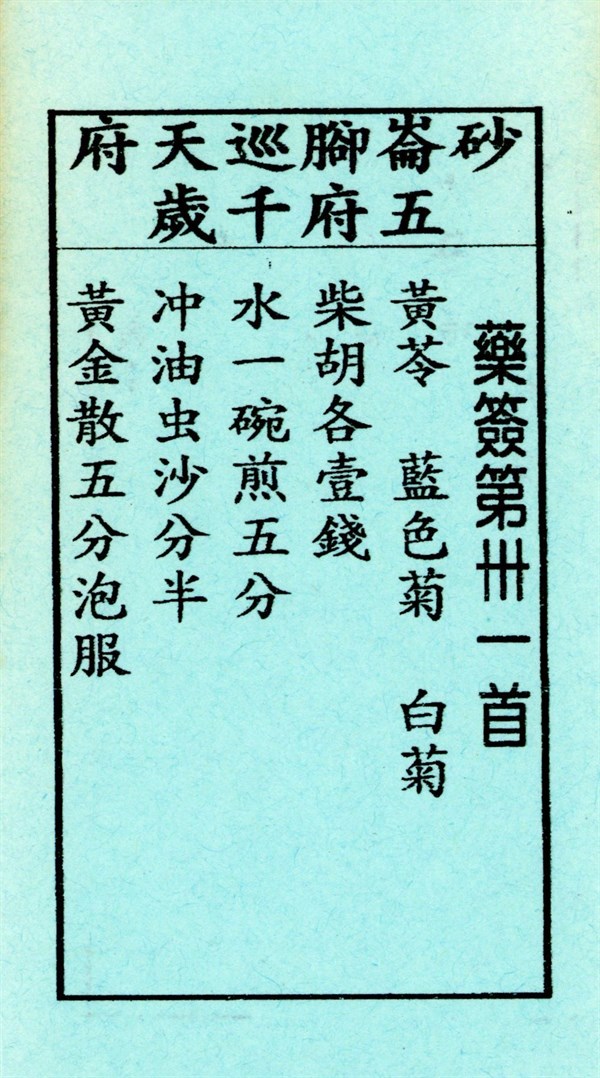 砂崙腳巡天府
五府千歲
藥簽第卌一首
黃苓 藍色菊 白菊
柴胡各壹錢
水一碗煎五分
冲油虫沙分半
黃金散五分泡服